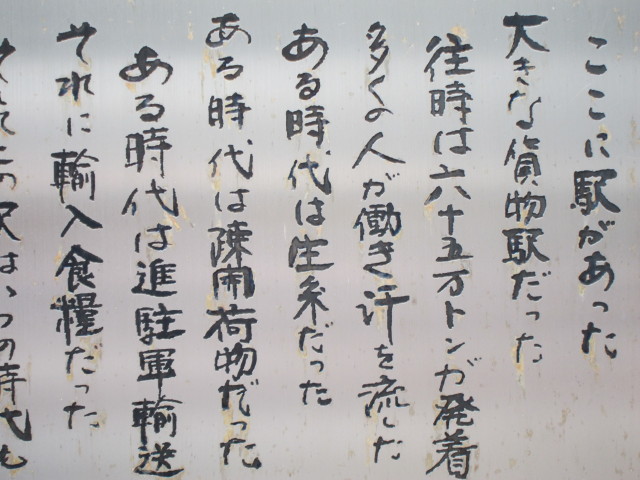 ここに駅があった
大きな貨物駅だった
往時は六十五万トンが発着
多くの人が働き汗を流した
ある時代は生糸だった
ある時代は疎開荷物だった
ある時代は進駐軍輸送
それに輸入食糧だった
この駅はいつの時代も